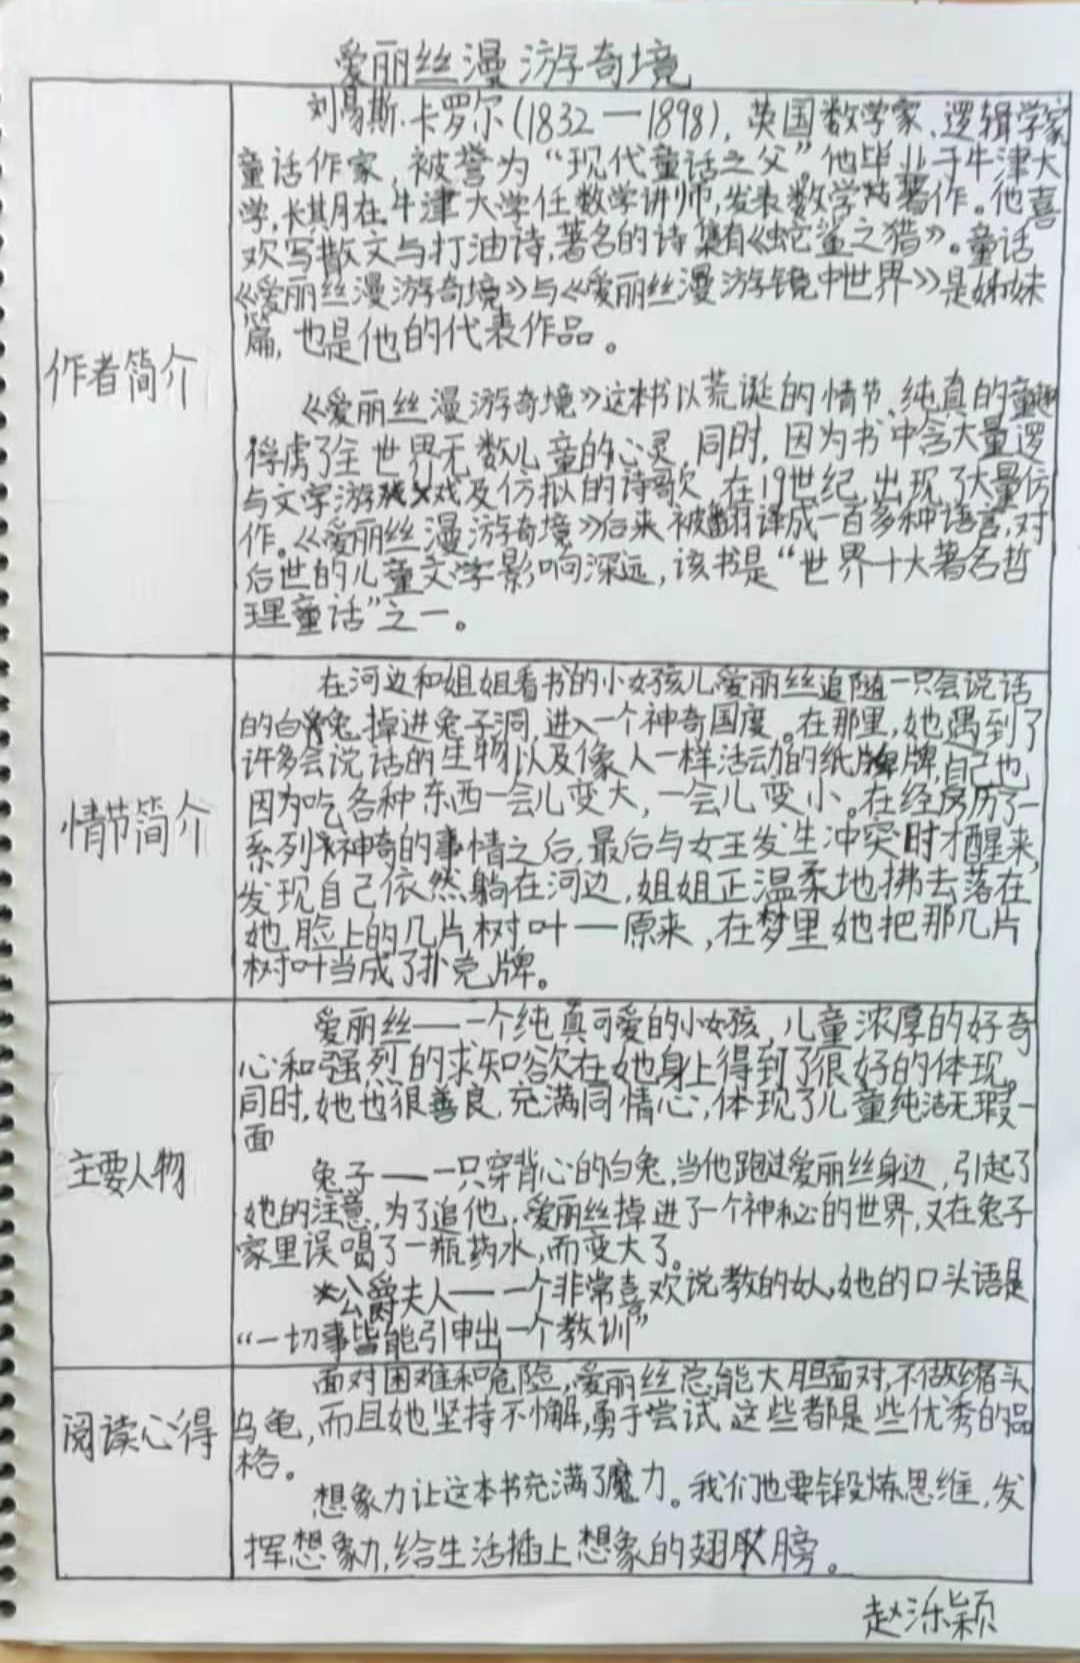 爱丽丝漫游奇境
作者简介
刘易斯·卡罗尔(1832—1898),英国数学家、逻辑学家
童话作家,被誉为“现代童话之父”。他毕业于牛津大
学,长期在牛津大学任数学讲师,发表数学著作。他喜
欢写散文与打油诗,著名的诗集有《蛇鲨之猎》。童话
《爱丽丝漫游奇境》与《爱丽丝漫游镜中世界》是姊妹
篇,也是他的代表作品。
《爱丽丝漫游奇境》这本书以荒诞的情节、纯真的童趣
俘虏了全世界无数儿童的心灵,同时,因为书中含大量逻
与文字游戏及仿拟的诗歌,在19世纪,出现了大量仿
作。《爱丽丝漫游奇境》后来被翻译成一百多种语言,对
后世的儿童文学影响深远,该书是“世界十大著名哲
理童话”之一。
情节简介
在河边和姐姐看书的小女孩儿爱丽丝追随一只会说话
的白兔掉进兔子洞,进入一个神奇国度。在那里,她遇到了
许多会说话的生物以及像人一样活动的纸牌,自己也
因为吃各种东西一会儿变大,一会儿变小。在经历了一
系列神奇的事情之后,最后与女王发生冲突时才醒来,
发现自己依然躺在河边,姐姐正温柔地拂去落在
她脸上的几片树叶——原来,在梦里她把那几片
树叶当成了扑克牌。
主要人物
爱丽丝——一个纯真可爱的小女孩,儿童浓厚的好奇
心和强烈的求知欲在她身上得到了很好的体现。
同时,她也很善良,充满同情心,体现了儿童纯洁无瑕一
面
兔子——一只穿背心的白兔,当他跑过爱丽丝身边,引起了
她的注意,为了追他,爱丽丝掉进了一个神秘的世界,又在兔子
家里误喝了一瓶药水,而变大了。
公爵夫人——一个非常喜欢说教的女人,她的口头语是
“一切事皆能引申出一个教训”
阅读心得
面对困难和危险,爱丽丝总能大胆面对,不做缩头
乌龟,而且她坚持不懈,勇于尝试,这些都是些优秀的品
格。
想象力让这本书充满了魔力。我们也要锻炼思维,发
挥想象力,给生活插上想象的翅膀。
赵泺颖